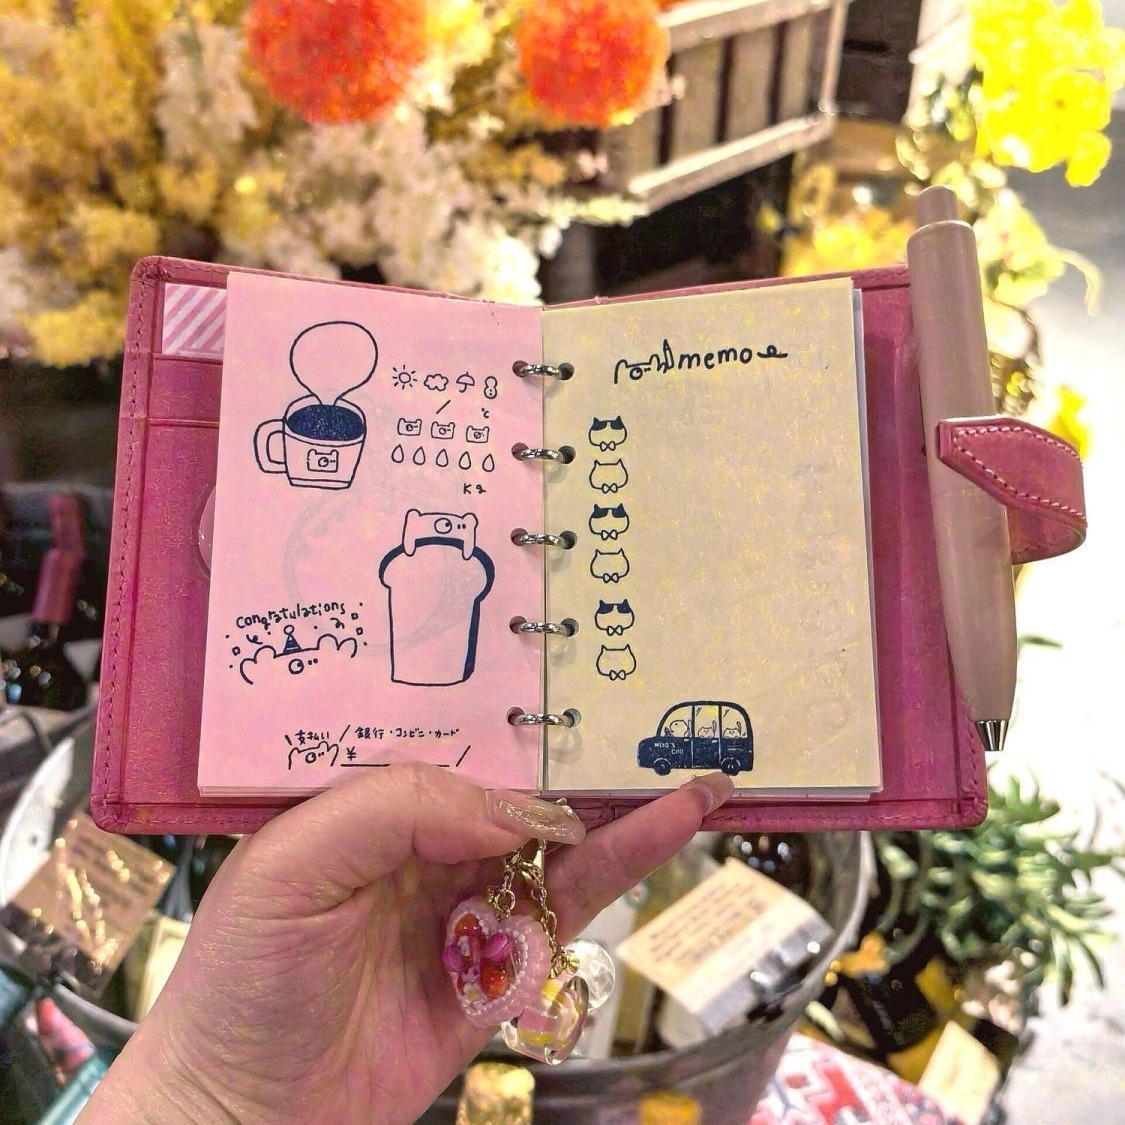 ℃
Kg
congratulations
支払い 銀行・コンビニ・カード
¥
memo
MEKO'S
CAR